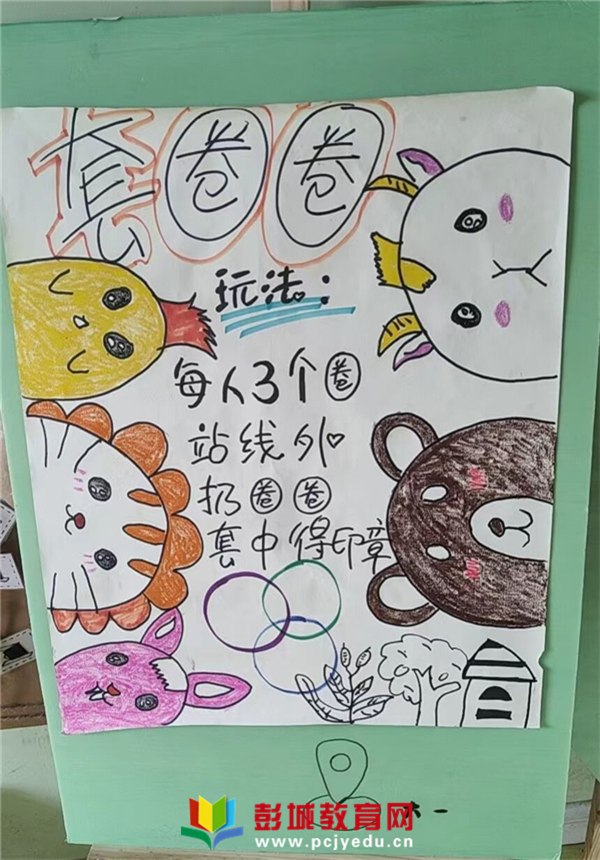 套圈圈
玩法:
每人3个圈
站线外
扔圈圈
套中得印章
大一
彭城教育网
www.pcjyedu.cn